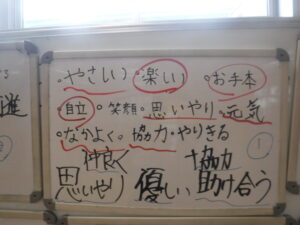 ・やさしい ・楽しい ・お手本
・自立 ・笑顔・思いやり・元気
・なかよく。協力・やりきる
仲良く 協力 ①
思いやり 優しい 助け合う
進